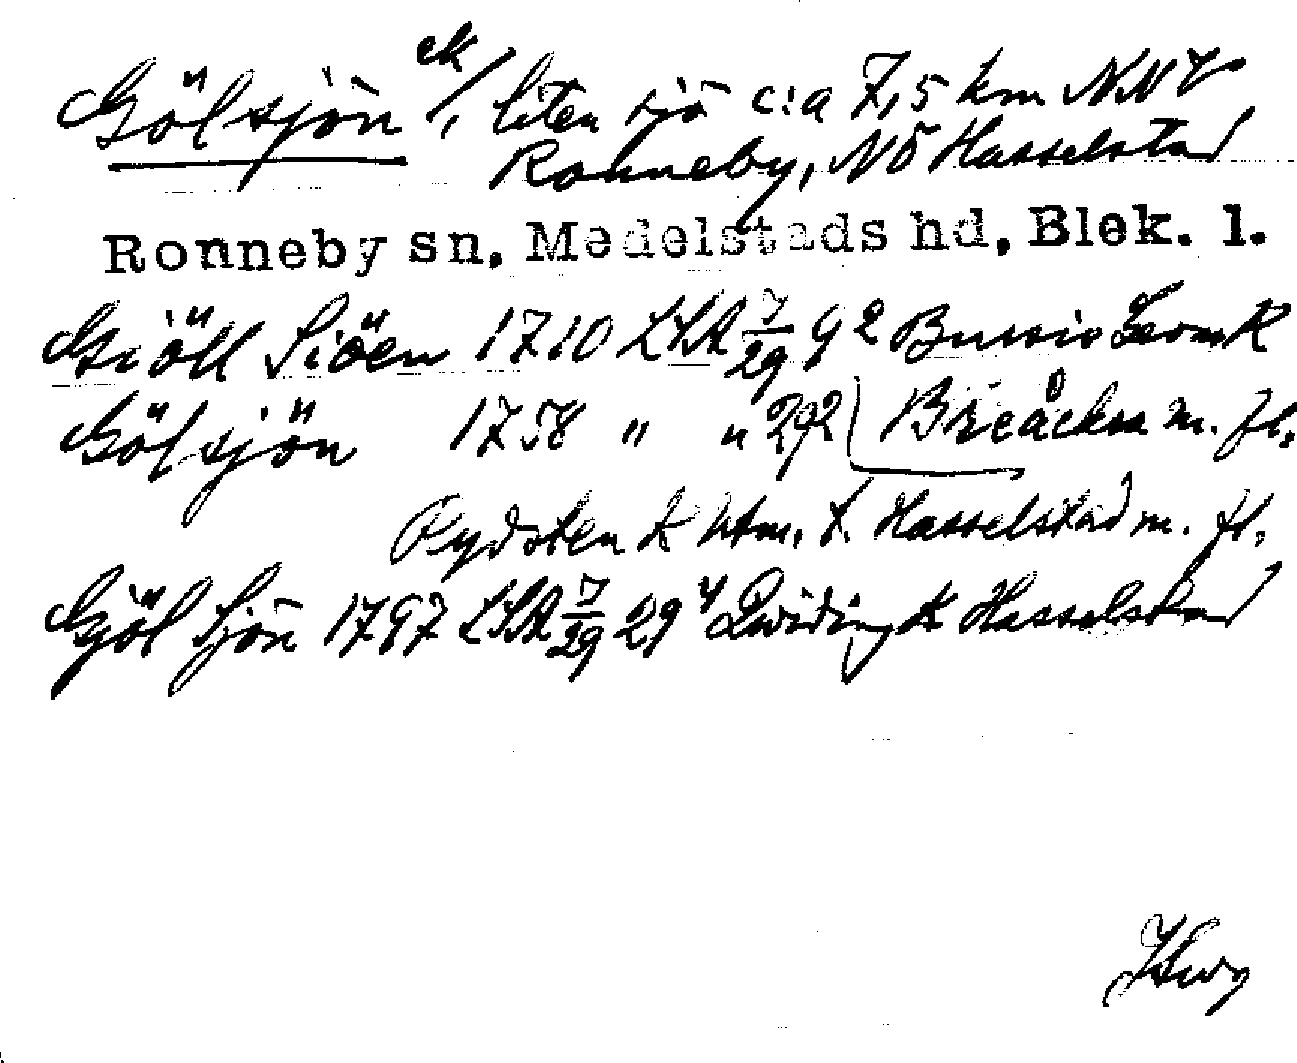 Gölsjön ek/, liten sjö c:a 7,5 km NNV
Ronneby, NÖ Hasselstad
Ronneby sn, Medelstads hd, Blek. l.
Giöll Siöen 1710 LSA 7/29 9 2
Gölsjön 1758 " " 292 Breåckra m. fl.
Rydsten k Utm. t. Hasselstad m. fl.
Gjöl Sjön 1797 LSA 7/29 29 4 Qwiding K Hasselstad